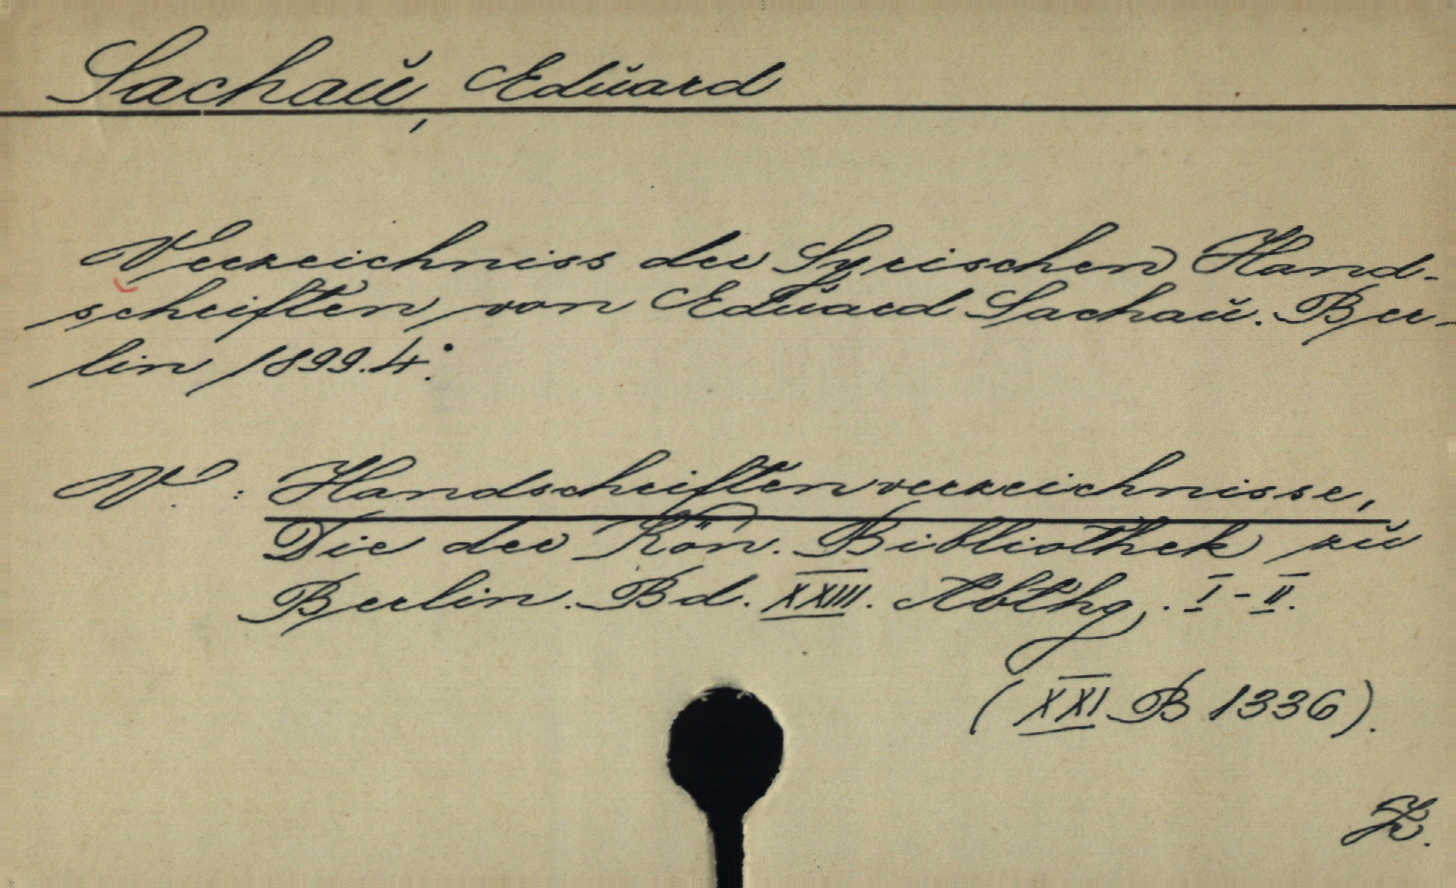 Sachau, Eduard
Verzeichniss der Syrischen Hand-
schriften von Eduard Sachau. Ber-
lin 1899. 4°.
V. : Handschriftenverzeichnisse,
Die der Kön. Bibliothek zu
Berlin. Bd. XXIII. Abthg. I-II.
(XXI B 1336).